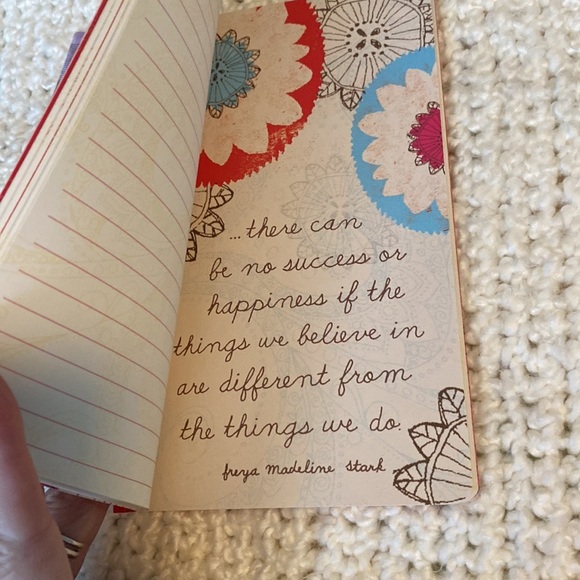 ...there can
be no success or
happiness if the
things we believe in
are different from
the things we do.
freya madeline stark